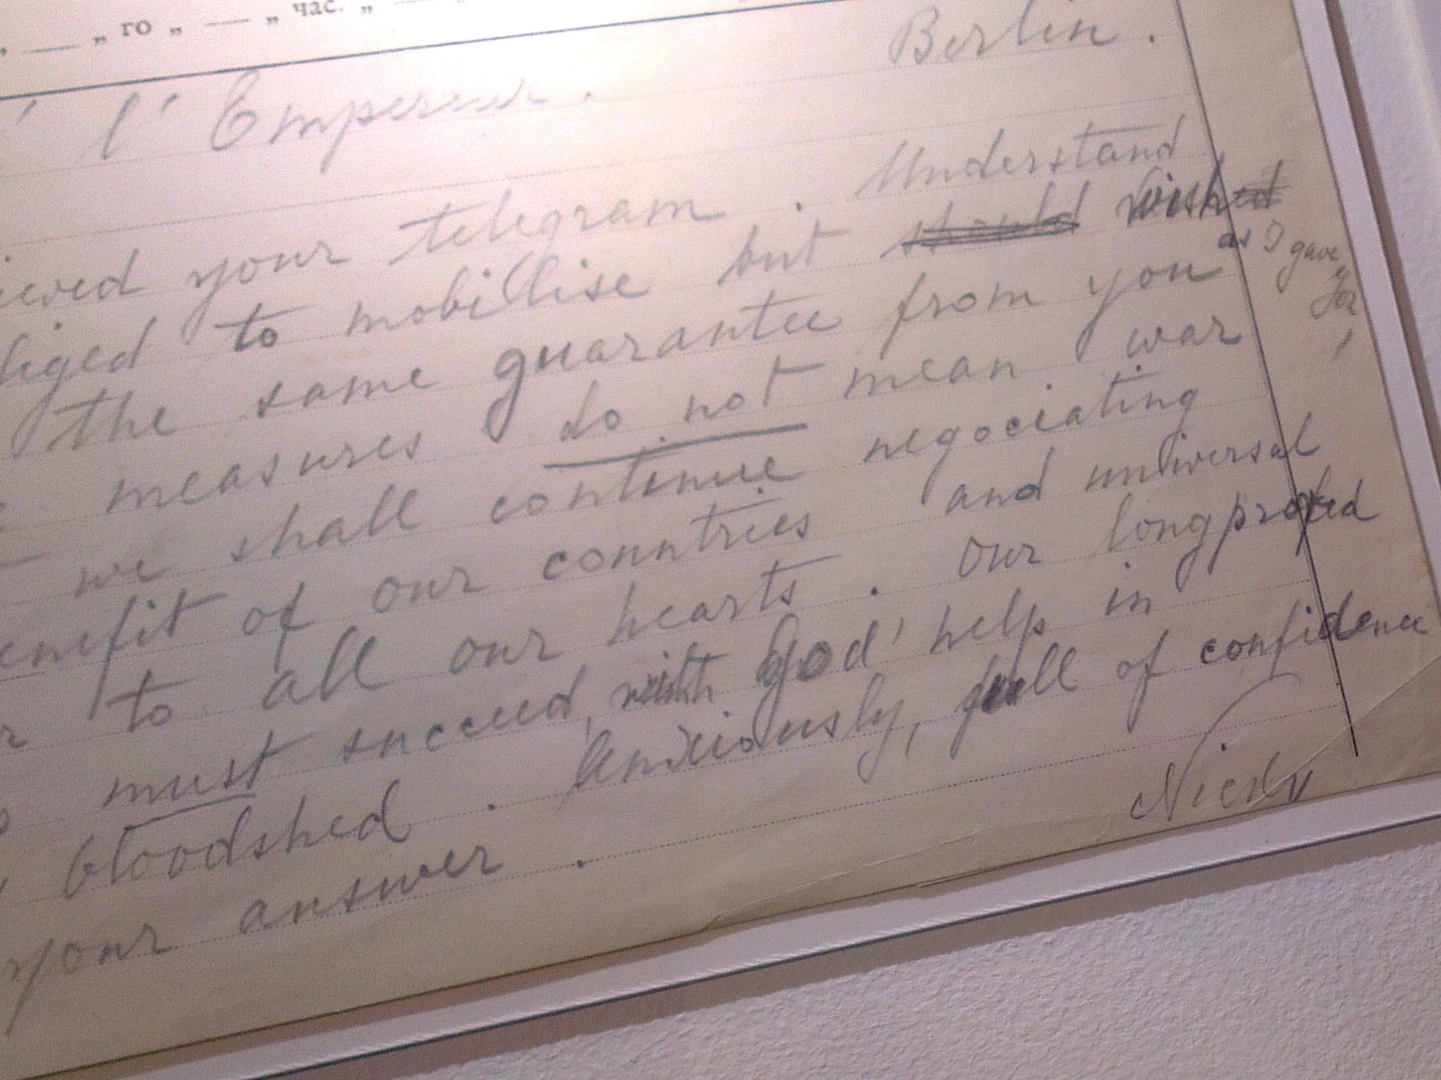 „ __ „ го „ __ „ час. „ __
Berlin.
' l' Empereur.
ieved your telegram. Understand
liged to mobillise but should wished
as I gave
the same guarantee from you
measures do not mean war
we shall continue negociating
enefit of our countries and universal
r to all our hearts. Our longproved
must succeed, with God' help in
bloodshed. Anxiously, full of confidence
your answer.
Nicky